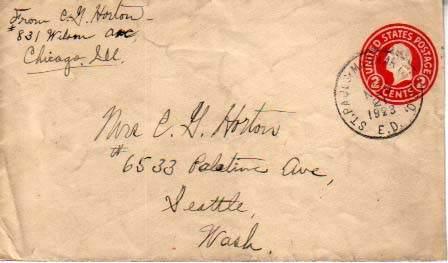 From C. G. Horton
#831 Wilson Ave,
Chicago, Ill.
UNITED STATES POSTAGE
2 CENTS 2
ST. PAUL & M
1923
E.D.
Mrs C. G. Horton
#6533 Palatine Ave,
Seattle,
Wash.